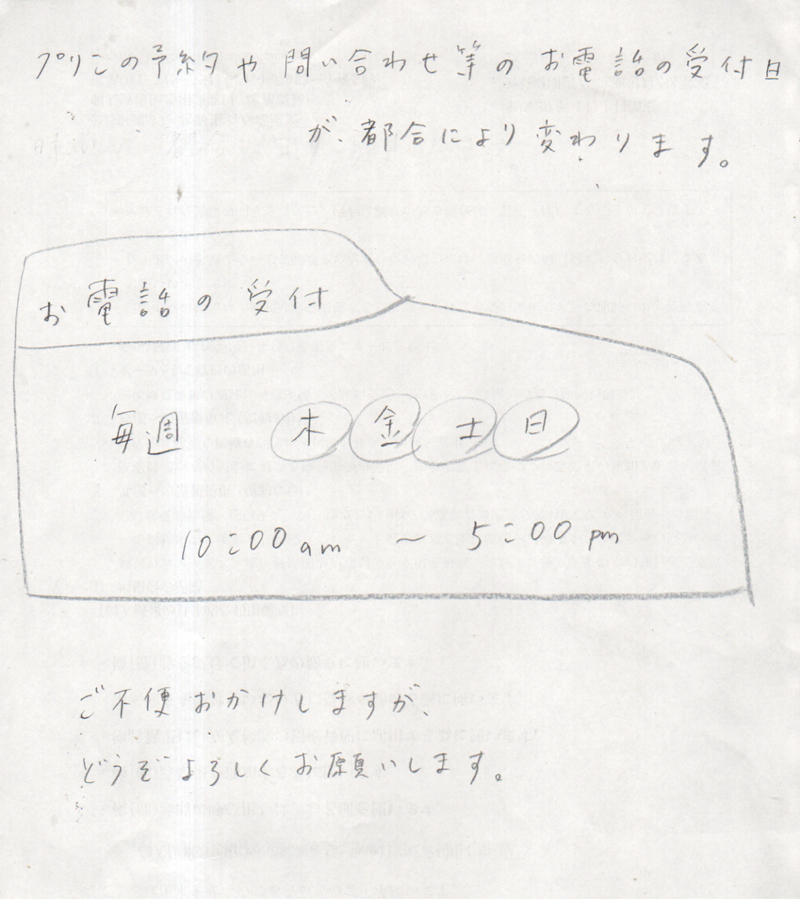 プリンの予約や問い合わせ等のお電話の受付日
が、都合により変わります。
お電話の受付
毎週 木 金 土 日
10:00am 〜 5:00pm
ご不便おかけしますが、
どうぞよろしくお願いします。